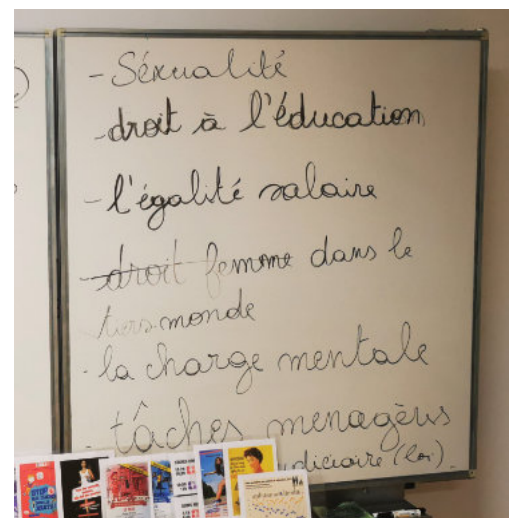 - Séxualité
- droit à l'éducation
- l'égalité salaire
- droit femme dans le
tiers monde
- la charge mentale
- tâches menagères
diciaire (loi)